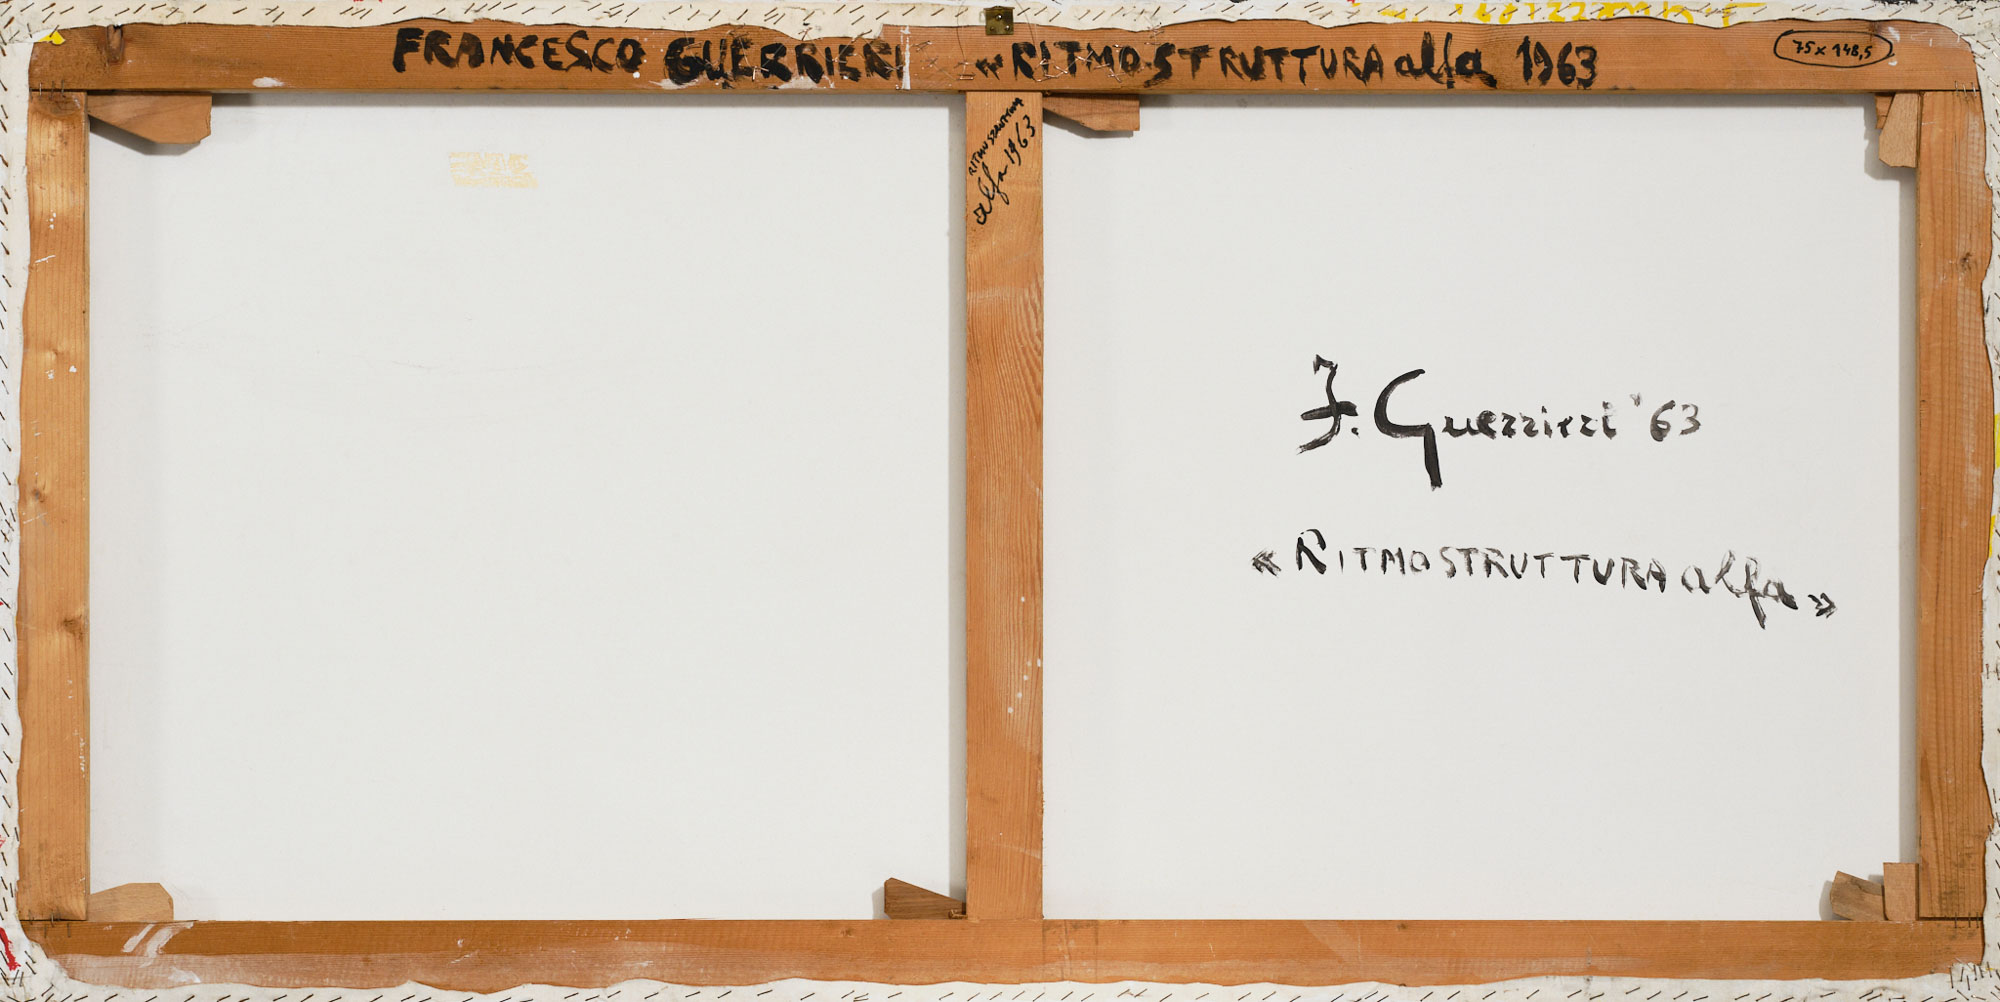 FRANCESCO GUERRIERI «RITMOSTRUTTURA alfa 1963
75 x 148,5
RITMOSTRUTTURA
alfa 1963
F. Guerrieri '63
«RITMOSTRUTTURA alfa»